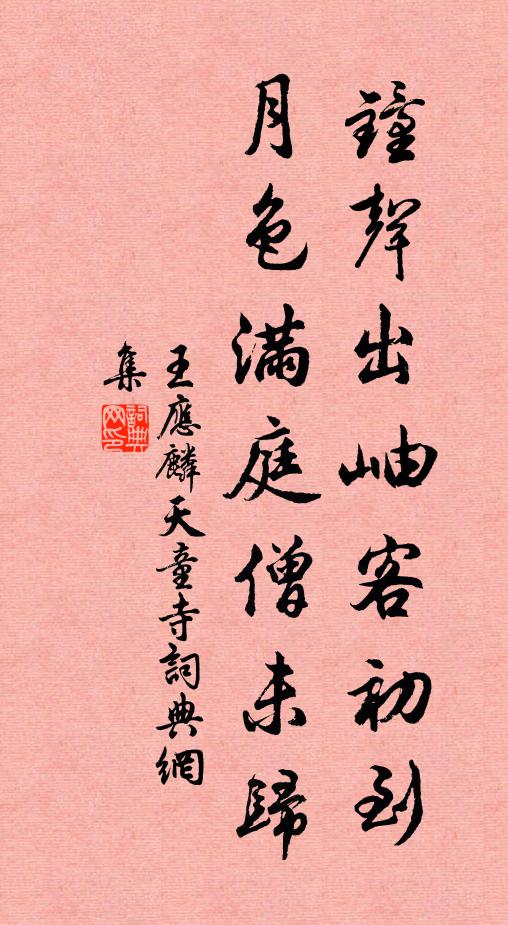 鐘聲出岫客初到
月色滿庭僧未歸
王應麟天童寺詞典網
集
詞典網印